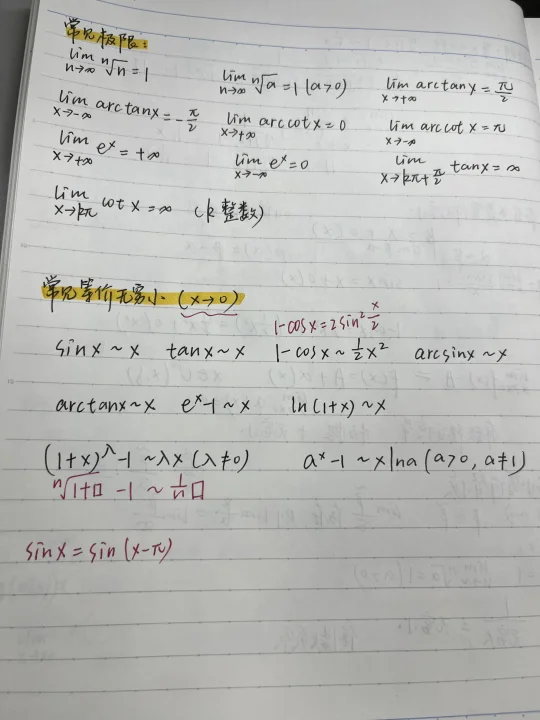 常见极限:
lim n→∞ ⁿ√n = 1 lim n→∞ ⁿ√a = 1 (a>0) lim x→+∞ arctanx = π/2
lim x→-∞ arctanx = -π/2 lim x→+∞ arccotx = 0 lim x→-∞ arccotx = π
lim x→+∞ eˣ = +∞ lim x→-∞ eˣ = 0 lim x→kπ+π/2 tanx = ∞
lim x→kπ cotx = ∞ (k整数)
常见等价无穷小 (x→0)
1-cosx = 2sin² x/2
sinx ~ x tanx ~ x 1-cosx ~ 1/2 x² arcsinx ~ x
arctanx ~ x eˣ-1 ~ x ln(1+x) ~ x
(1+x)^λ -1 ~ λx (λ≠0) aˣ-1 ~ xlna (a>0, a≠1)
ⁿ√1+□ -1 ~ 1/n □
sinx = sin (x-π)